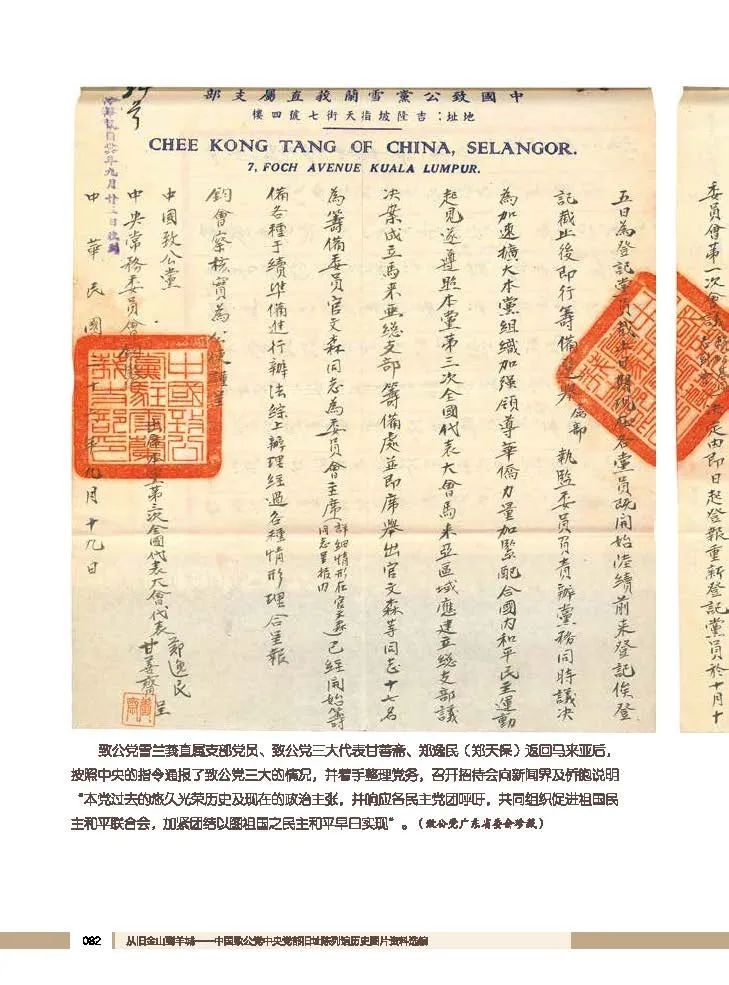 中國致公黨雪蘭莪直屬支部
地址：吉隆坡指天街七號四樓
CHEE KONG TANG OF CHINA, SELANGOR.
7, FOCH AVENUE KUALA LUMPUR.
委員會第一次會議 決定由即日起登報重新登記黨員於十月十
五日為登記黨員截止日期現在各黨員既開始陸續前來登記俟登
記截止後即行籌備選舉 執監委員負責辦黨務同時議決
為加速擴大本黨組織加强領導華僑力量加緊配合國內和平民主運動
起見遂遵照本黨第三次全國代表大會馬來亞區域應建立總支部議
決案成立馬來亞總支部籌備處並即席舉出官文森等同志十七名
為籌備委員官文森同志為委員會主席（詳細情形在官文森同志呈報內）已經開始籌
備各種手續準備進行辦法綜上辦理經過各種情形理合呈報
鈞會察核實為公便謹呈
中國致公黨
中央常務委員會
出席本黨第三次全國代表大會代表 鄭逸民
甘善齋 呈
中華民國三十 年九月十九日
致公党雪兰莪直属支部党员、致公党三大代表甘善斋、郑逸民（郑天保）返回马来亚后，
按照中央的指令通报了致公党三大的情况，并着手整理党务，召开招待会向新闻界及侨胞说明
“本党过去的悠久光荣历史及现在的政治主张，并响应各民主党团呼吁，共同组织促进祖国民
主和平联合会，加紧团结以图祖国之民主和平早日实现”。（致公党广东省委会珍藏）
082 从旧金山到羊城——中国致公党中央党部旧址陈列馆历史图片资料选编